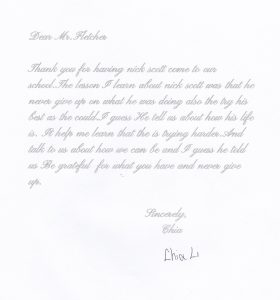 Dear Mr.Fletcher
Thank you for having nick scott come to our
school.The lesson I learn about nick scott was that he
never give up on what he was doing also the try his
best as the could.I guess He tell us about how his life
is. It help me learn that the is trying harder.And
talk to us about how we can be and I guess he told
us Be grateful for what you have and never give
up.
Sincerely,
Chia
Chia L